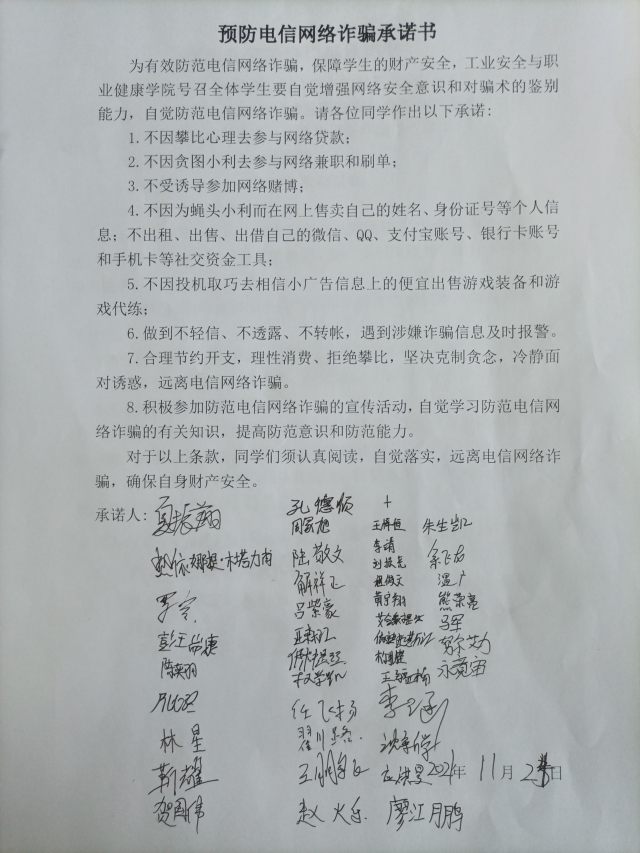 预防电信网络诈骗承诺书
为有效防范电信网络诈骗，保障学生的财产安全，工业安全与职
业健康学院号召全体学生要自觉增强网络安全意识和对骗术的鉴别
能力，自觉防范电信网络诈骗。请各位同学作出以下承诺：
1.不因攀比心理去参与网络贷款；
2.不因贪图小利去参与网络兼职和刷单；
3.不受诱导参加网络赌博；
4.不因为蝇头小利而在网上售卖自己的姓名、身份证号等个人信
息；不出租、出售、出借自己的微信、QQ、支付宝账号、银行卡账号
和手机卡等社交资金工具；
5.不因投机取巧去相信小广告信息上的便宜出售游戏装备和游
戏代练；
6.做到不轻信、不透露、不转帐，遇到涉嫌诈骗信息及时报警。
7.合理节约开支，理性消费、拒绝攀比，坚决克制贪念，冷静面
对诱惑，远离电信网络诈骗。
8.积极参加防范电信网络诈骗的宣传活动，自觉学习防范电信网
络诈骗的有关知识，提高防范意识和防范能力。
对于以上条款，同学们须认真阅读，自觉落实，远离电信网络诈
骗，确保自身财产安全。
承诺人：夏振翔 孔德顺
周宏旭 朱生岂
陆敬文 李靖 余飞龙
解祥正 温广
罗宁 吕紫豪 黄宇翔 熊荣亮
彭江尚 马军
陈奕羽 永竟宙
任飞扬
林星
靳耀 年11月2日
贺国伟 赵火乐 廖江月鹏